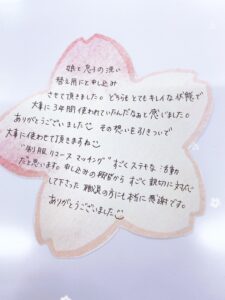 娘と息子の洗い
替え用にと申し込み
させて頂きました。どちらもとてもキレイな状態で
大事に3年間使われていたんだなぁと感じました。
ありがとうございました その想いを引きついで
大事に使わせて頂きますね
"制服リユースマッチング" すごくステキな活動
だと思います。申し込みの段階から すごく親切に対応
して下さった 職員の方にも本当に感謝です。
ありがとうございました